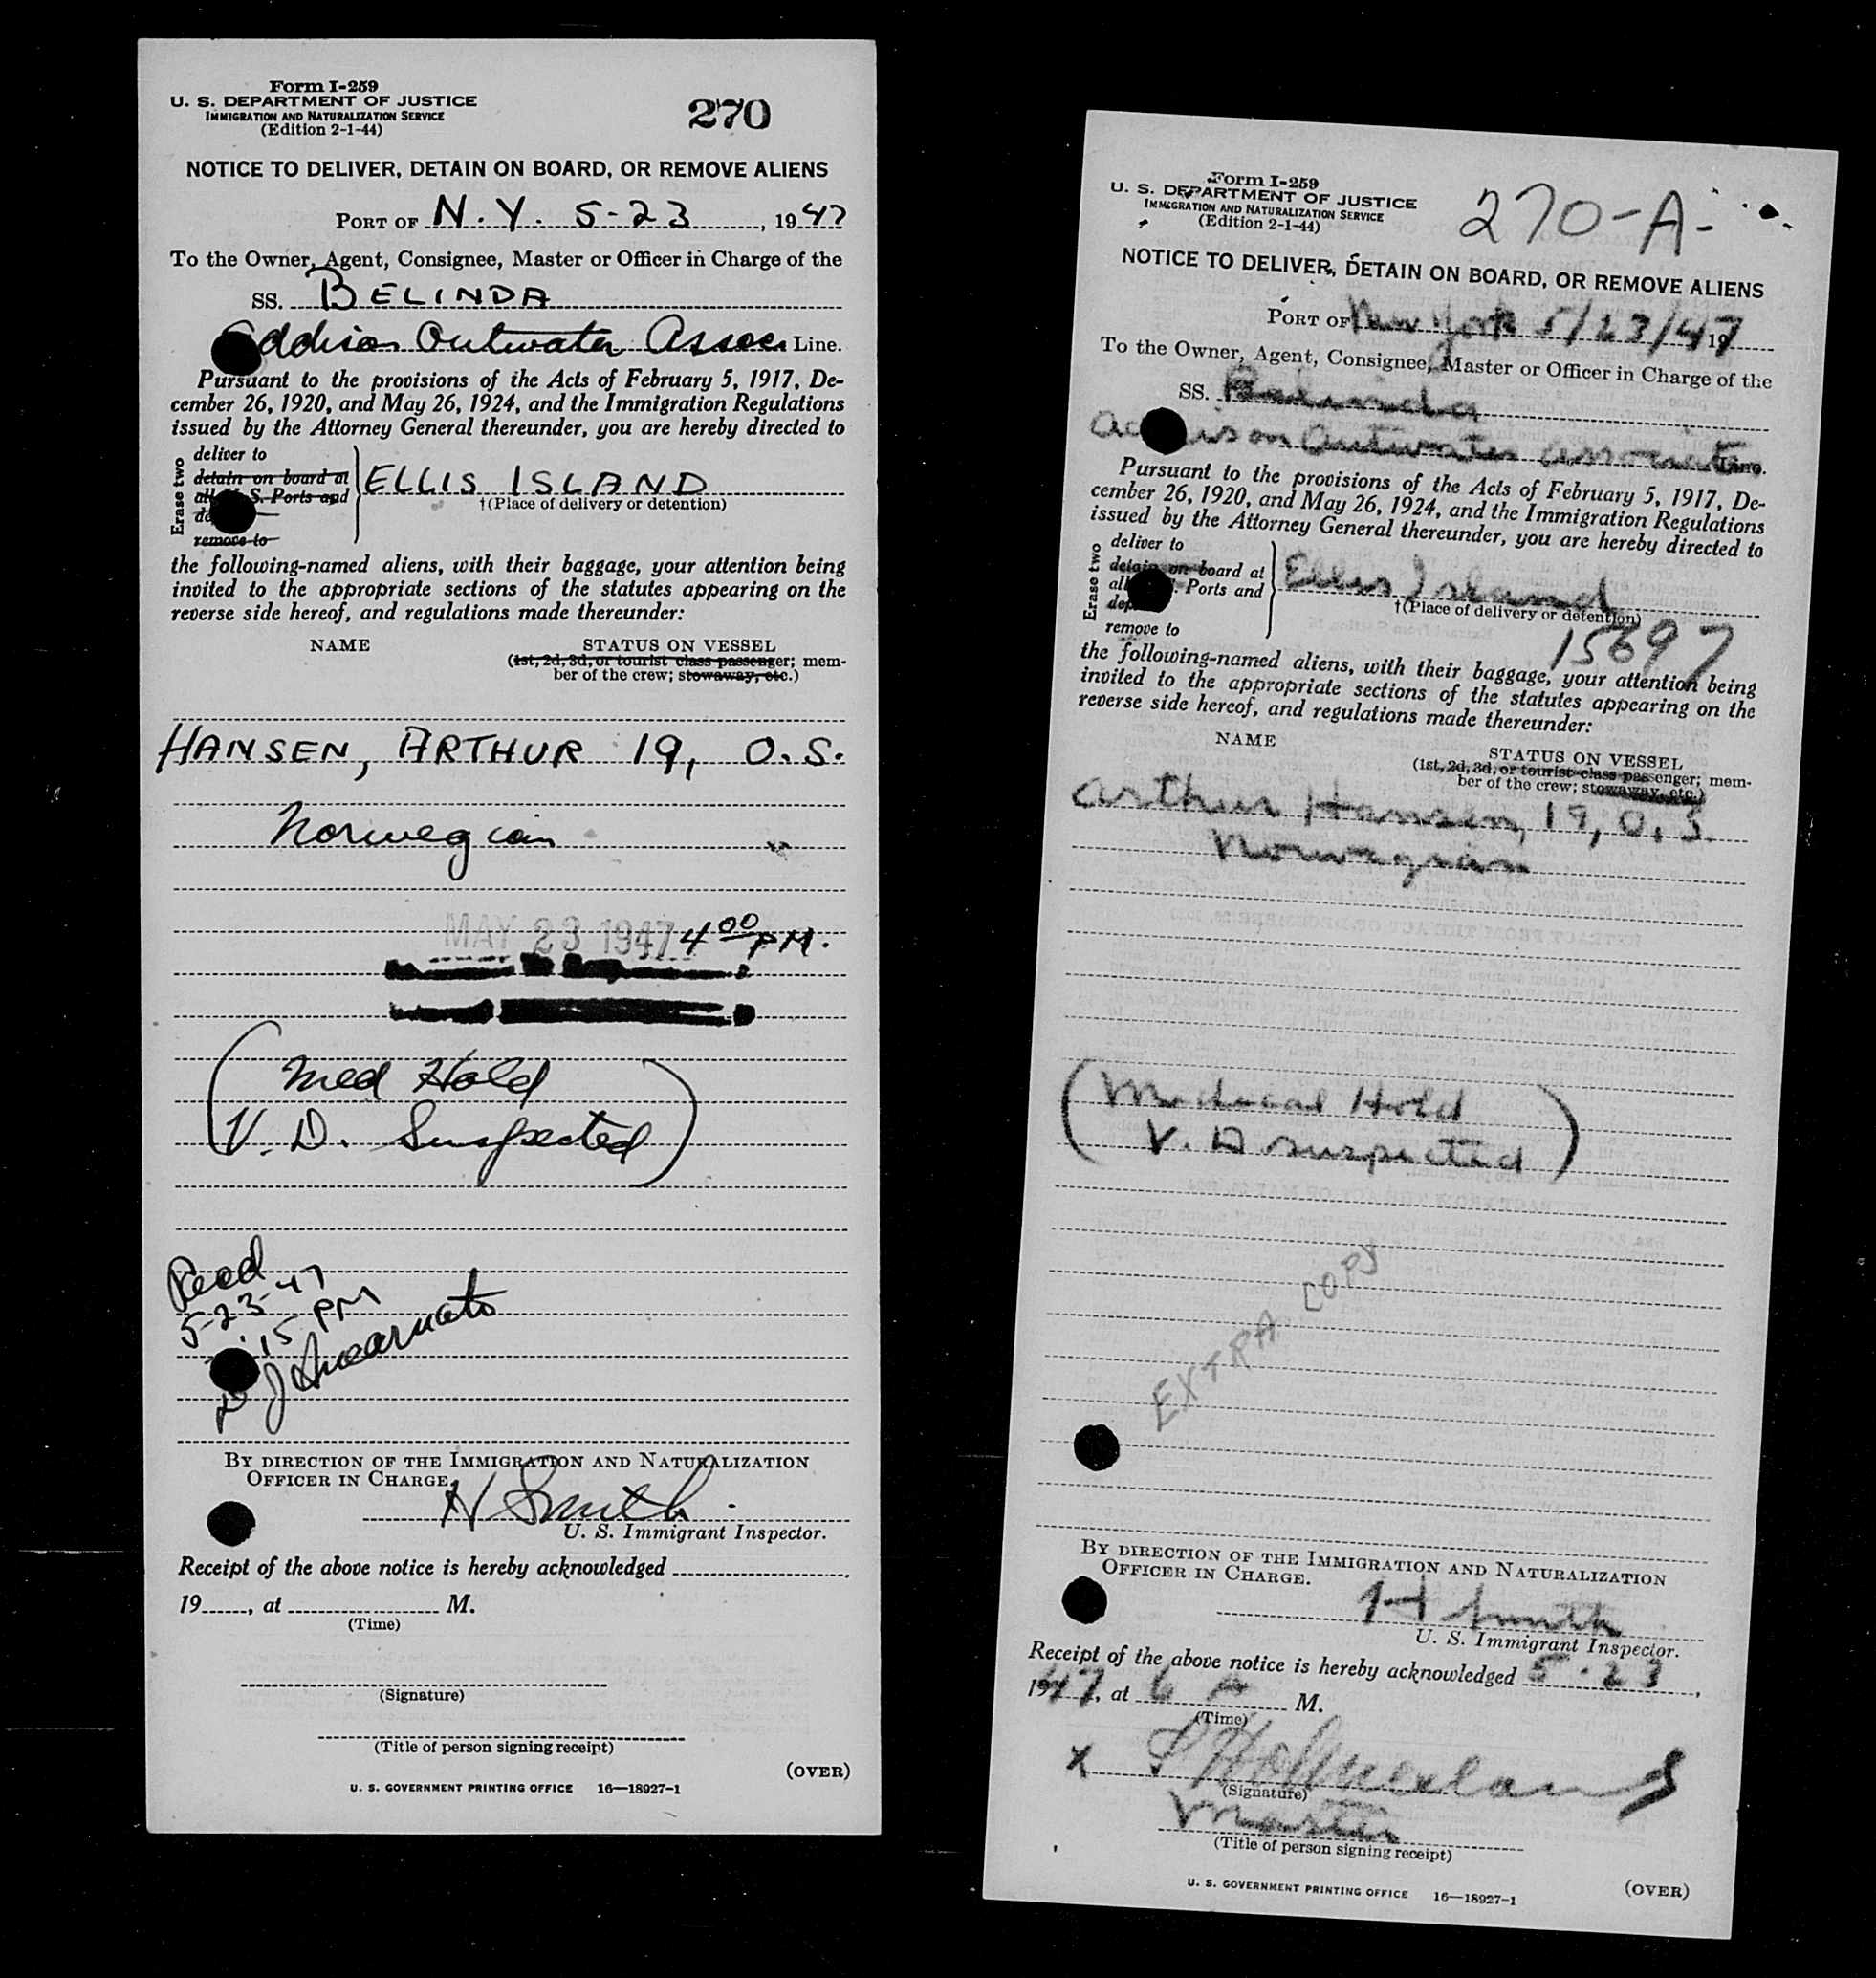 Form I-259
U. S. DEPARTMENT OF JUSTICE
IMMIGRATION AND NATURALIZATION SERVICE
(Edition 2-1-44)
270
NOTICE TO DELIVER, DETAIN ON BOARD, OR REMOVE ALIENS
PORT OF N.Y. 5-23, 1947
To the Owner, Agent, Consignee, Master or Officer in Charge of the
SS. BELINDA
Addison Outwater Assoc. Line.
Pursuant to the provisions of the Acts of February 5, 1917, De-
cember 26, 1920, and May 26, 1924, and the Immigration Regulations
issued by the Attorney General thereunder, you are hereby directed to
Erase two
deliver to
detain on board at
all U. S. Ports and
de
remove to
ELLIS ISLAND
†(Place of delivery or detention)
the following-named aliens, with their baggage, your attention being
invited to the appropriate sections of the statutes appearing on the
reverse side hereof, and regulations made thereunder:
NAME STATUS ON VESSEL
(1st, 2d, 3d, or tourist class passenger; mem-
ber of the crew; stowaway, etc.)
HANSEN, ARTHUR 19, O.S.
Norwegian
MAY 23 1947 4 00 PM.
(Med Hold
V. D. Suspected)
Recd
5-23-47
15 PM
BY DIRECTION OF THE IMMIGRATION AND NATURALIZATION
OFFICER IN CHARGE.
H Smith
U. S. Immigrant Inspector.
Receipt of the above notice is hereby acknowledged
19, at M.
(Time)
(Signature)
(Title of person signing receipt)
(OVER)
U. S. GOVERNMENT PRINTING OFFICE 16—18927-1
Form I-259
U. S. DEPARTMENT OF JUSTICE
IMMIGRATION AND NATURALIZATION SERVICE
(Edition 2-1-44)
270-A-
NOTICE TO DELIVER, DETAIN ON BOARD, OR REMOVE ALIENS
PORT OF New York 5/23/47 19
To the Owner, Agent, Consignee, Master or Officer in Charge of the
SS. Belinda
Addison Outwater Associates Line.
Pursuant to the provisions of the Acts of February 5, 1917, De-
cember 26, 1920, and May 26, 1924, and the Immigration Regulations
issued by the Attorney General thereunder, you are hereby directed to
Erase two
deliver to
detain on board at
all U. S. Ports and
dep
remove to
Ellis Island
†(Place of delivery or detention)
15697
the following-named aliens, with their baggage, your attention being
invited to the appropriate sections of the statutes appearing on the
reverse side hereof, and regulations made thereunder:
NAME STATUS ON VESSEL
(1st, 2d, 3d, or tourist class passenger; mem-
ber of the crew; stowaway, etc.)
Arthur Hansen, 19, O. S.
Norwegian
(Medical Hold
V. D suspected)
EXTRA COPY
BY DIRECTION OF THE IMMIGRATION AND NATURALIZATION
OFFICER IN CHARGE.
H Smith
U. S. Immigrant Inspector.
Receipt of the above notice is hereby acknowledged 5-23,
1947, at 6 A M.
(Time)
X
(Signature)
Master
(Title of person signing receipt)
(OVER)
U. S. GOVERNMENT PRINTING OFFICE 16—18927-1